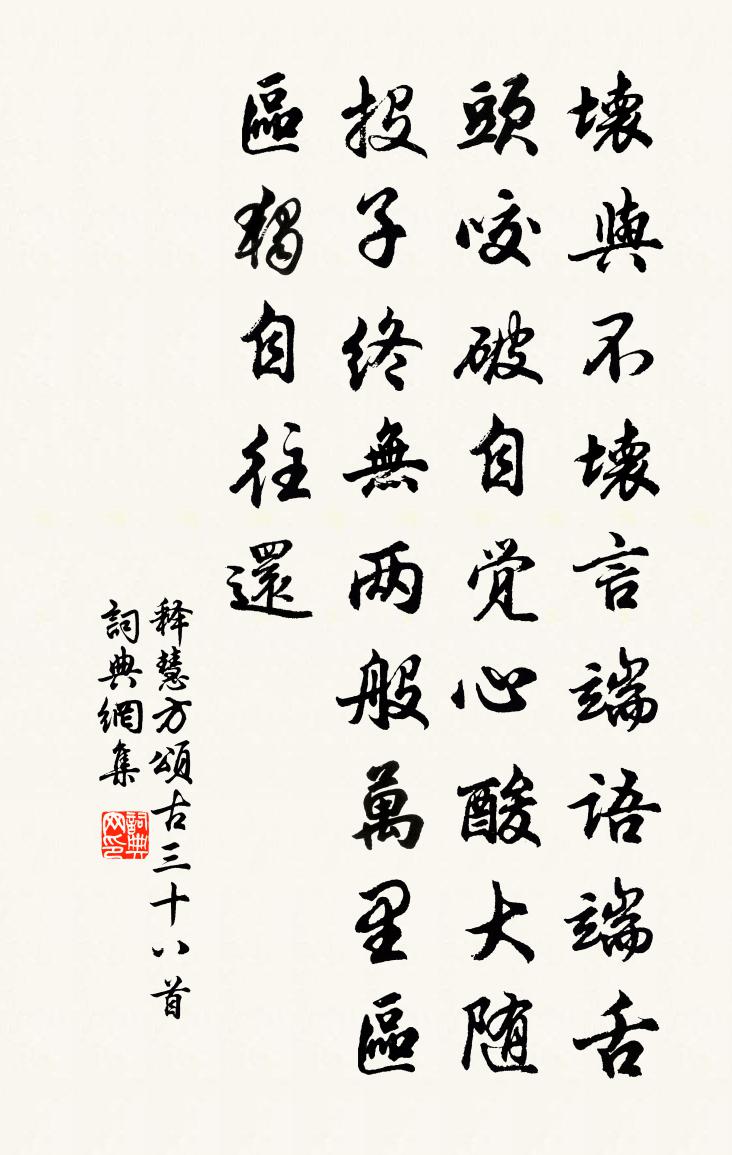 壞與不壞言端語端舌
頭咬破自覚心酸大随
投子終無両般萬里區
區獨自往還
释慧方頌古三十八首
詞典網集
詞典网印